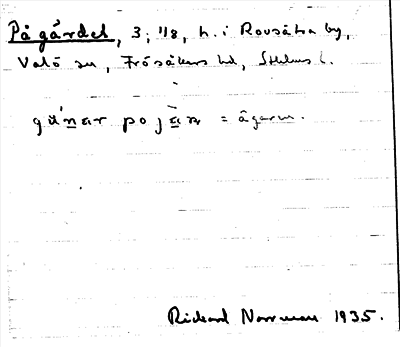 På gärdet, 3; 1/8, h. i Rovsätra by,
Valö sn, Frösåkers hd, Sthlms l.
gu´nar po jä̀ = ägaren.
Rickard Norrman 1935.